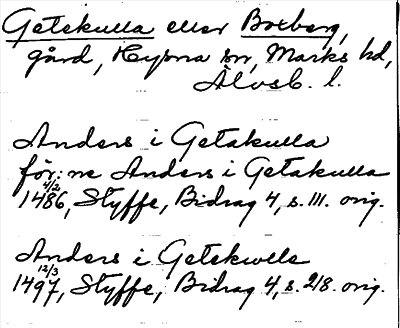 Getekulla eller Boxberg,
gård, Kyrna sn, Marks hd,
Älvsb. l.
Anders i Getakulla
för: ne Anders i Getakulla
4/2
1486, Styffe, Bidrag 4, s. 111. orig.
Anders i Getekwlle
12/3
1497, Styffe, Bidrag 4, s. 218. orig.